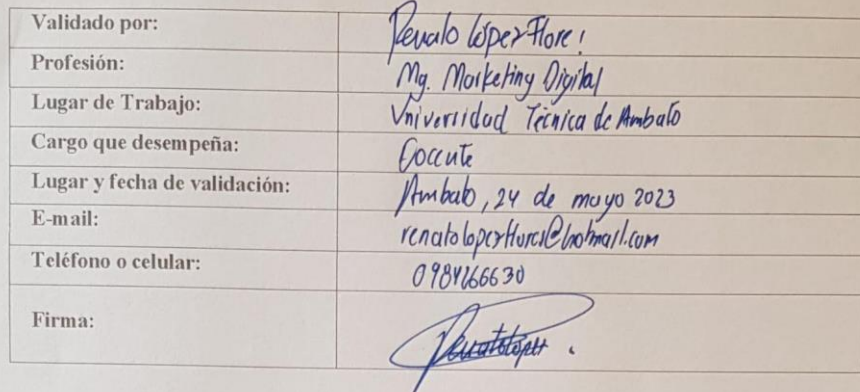 Validado por: Renato López Flores
Profesión: Mg. Marketing Digital
Lugar de Trabajo: Universidad Técnica de Ambato
Cargo que desempeña: Docente
Lugar y fecha de validación: Ambato, 24 de mayo 2023
E-mail: renatolopezflores@hotmail.com
Teléfono o celular:
Firma: Renato López